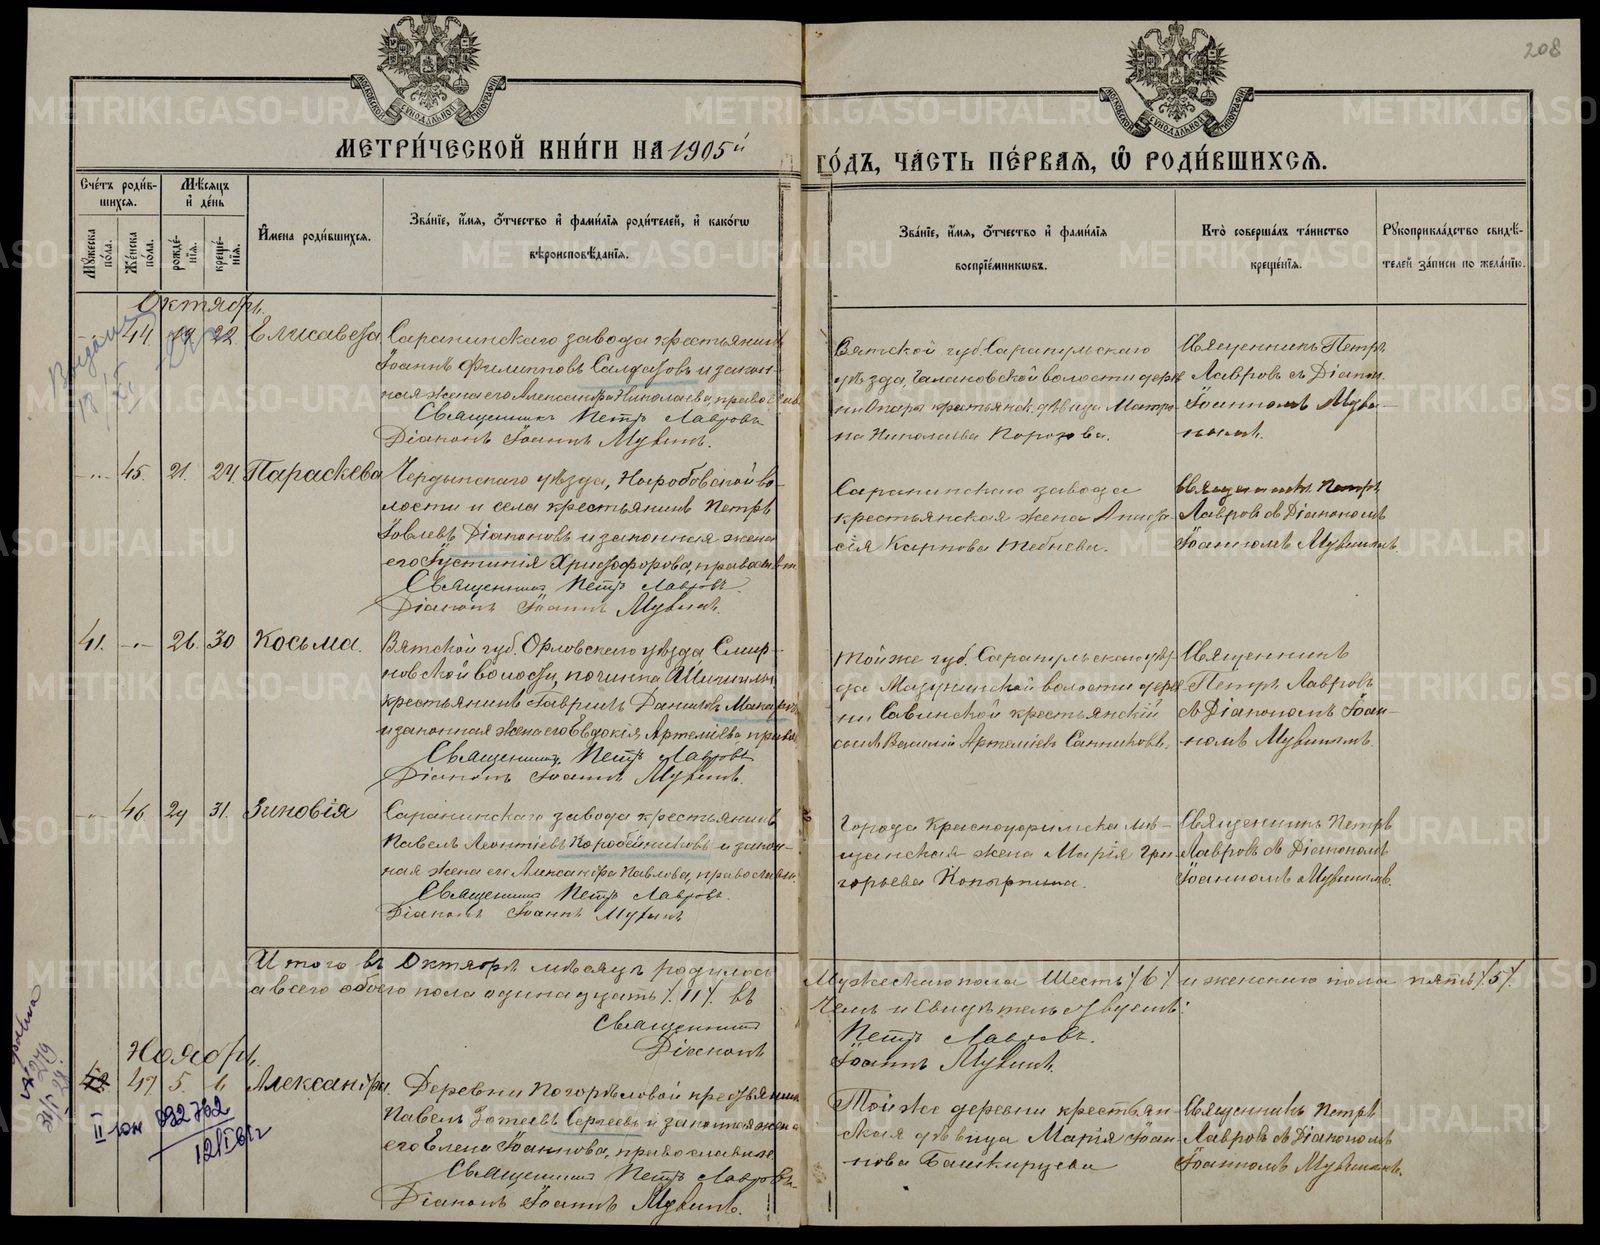 208
МЕТРИЧЕСКОЙ КНИГИ НА 1905й ГОДЪ, ЧАСТЬ ПЕРВАЯ, Ѽ РОДИВШИХСЯ.
Счетъ родив-
шихся.
Мужеска пола.
Женска пола.
Мѣсяцъ
и день
рожде-
нія.
креще-
нія.
Имена родившихся.
Званіе, имя, отчество и фамилія родителей, и какогѡ
вѣроисповѣданія.
Званіе, имя, отчество и фамилія
воспріемникѡвъ.
Кто совершалъ таинство
крещенія.
Рукоприкладство свидѣ-
телей записи по желанію.
Октябрь.
44 19 22 Елисавета
Саранинскаго завода крестьянинъ
Іоаннъ Филипповъ и закон-
ная жена его Александра Николаева, правосл
Священникъ Петръ Лавровъ
Діаконъ Іоаннъ Мухинъ.
Вятской губ. Сарапульскаго
уѣзда, волости дерев
крестьянск. дѣвица Матро-
на Николаева
Священникъ Петръ
Лавровъ съ Діакон.
Іоанномъ Мухи-
нымъ.
45. 21. 24. Параскева
Чердынскаго уѣзда, Ныробовской во-
лости и села крестьянинъ Петръ
Іовлевъ Діаконовъ и законная жена
его Іустинія Христофорова, православн
Священникъ Петръ Лавровъ.
Діаконъ Іоаннъ Мухинъ.
Саранинскаго завода
крестьянская жена Анаста-
сія Карпова
Священникъ Петръ
Лавровъ съ Діакономъ
Іоанномъ Мухинымъ.
41. 26. 30 Косьма.
Вятской губ. Орловскаго уѣзда Смир-
новской волости, починка
крестьянинъ Гавріилъ Даниловъ
и законная жена его Евдокія Артеміева правос
Священникъ Петръ Лавровъ
Діаконъ Іоаннъ Мухинъ.
Той же губ. Сарапульскаго уѣз-
да Мазунинской волости дерев
ни Савинской крестьянскій
сынъ Василій Артеміевъ Санниковъ.
Священникъ
Петръ Лавровъ
съ Діакономъ Іоан-
номъ Мухинымъ.
46 29 31. Зиновія
Саранинскаго завода крестьянинъ
Павелъ Леонтіевъ Коробейниковъ и закон-
ная жена его Александра Павлова, православн.
Священникъ Петръ Лавровъ.
Діаконъ Іоаннъ Мухинъ
Города Красноуфимска мѣ-
щанская жена Марія Гри-
горьева Копыркина.
Священникъ Петръ
Лавровъ съ Діакономъ
Іоанномъ Мухинымъ.
Итого въ Октябрѣ мѣсяцѣ родилось Мужескаго пола Шесть /6/ и женскаго пола пять /5/.
а всего обоего пола одинадцать /.11/. въ чемъ и свидѣтельствуемъ:
Священникъ Петръ Лавровъ.
Діаконъ Іоаннъ Мухинъ.
Ноябрь.
47 5 6 Александра.
Деревни Погорѣловой крестьянинъ
Павелъ Зотеевъ Сергеевъ и законная жена
его Елена Іоаннова, православн.
Священникъ Петръ Лавровъ
Діаконъ Іоаннъ Мухинъ.
Той же деревни крестьян-
ская дѣвица Марія Іоан-
нова Башкирцева
Священникъ Петръ
Лавровъ съ Діакономъ
Іоанномъ Мухинымъ.
II-юн 092762
METRIKI.GASO-URAL.RU